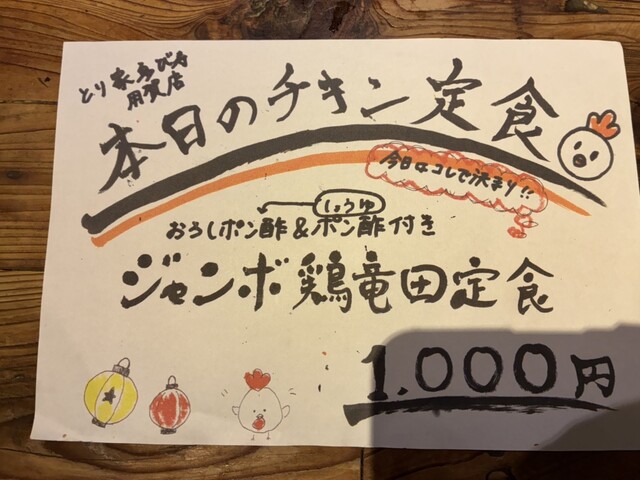 とり家ゑび寿
用賀店
本日のチキン定食
今日はコレで決まり!!
しょうゆ
おろしポン酢&ポン酢付き
ジャンボ鶏竜田定食
1.000円